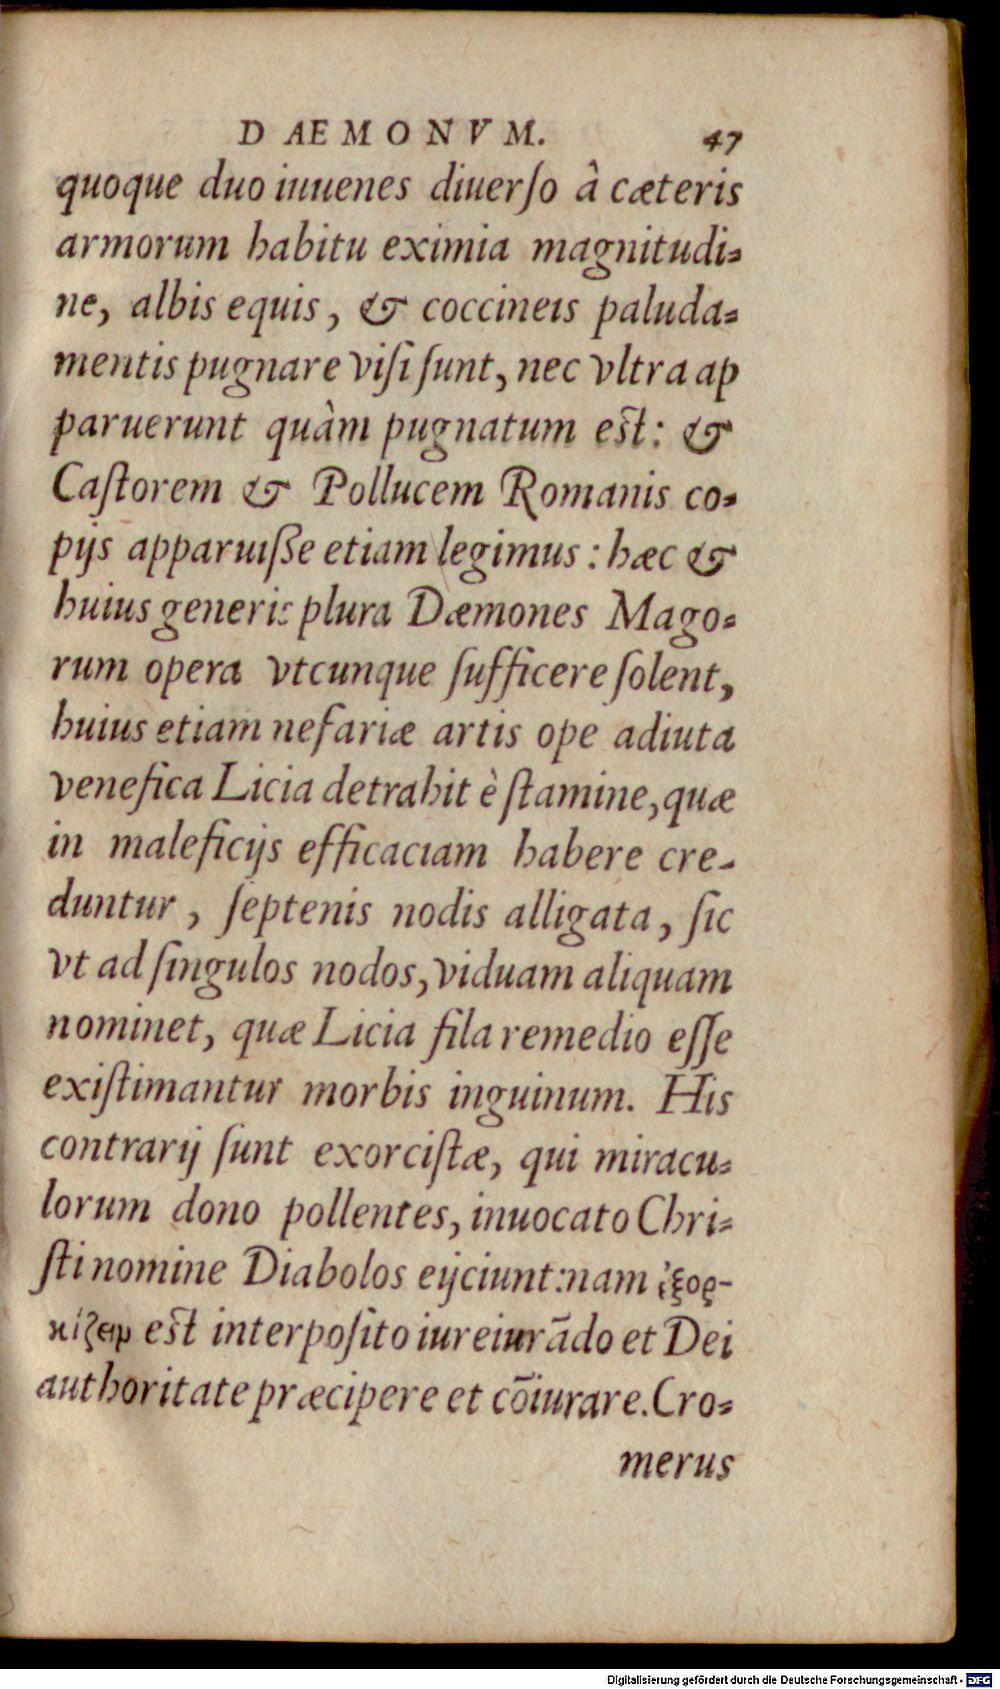 DAEMONVM. 47
quoque duo iuuenes diuerſo â cæteris
armorum habitu eximia magnitudi-
ne, albis equis, & coccineis paluda-
mentis pugnare viſi ſunt, nec vltra ap
paruerunt quàm pugnatum eſt: &
Caſtorem & Pollucem Romanis co-
pijs apparuiſſe etiam legimus: hæc &
huius generis plura Dæmones Mago-
rum opera vtcunque ſufficere ſolent,
huius etiam nefariæ artis ope adiuta
venefica Licia detrahit è ſtamine, quæ
in maleficijs efficaciam habere cre-
duntur, ſeptenis nodis alligata, ſic
vt ad ſingulos nodos, viduam aliquam
nominet, quæ Licia fila remedio eſſe
exiſtimantur morbis inguinum. His
contrarij ſunt exorciſtæ, qui miracu-
lorum dono pollentes, inuocato Chri-
ſti nomine Diabolos eijciunt: nam ἐξορ-
κίζειν eſt interpoſito iureiurãdo et Dei
authoritate præcipere et cõiurare. Cro-
merus
Digitalisierung gefördert durch die Deutsche Forschungsgemeinschaft - DFG